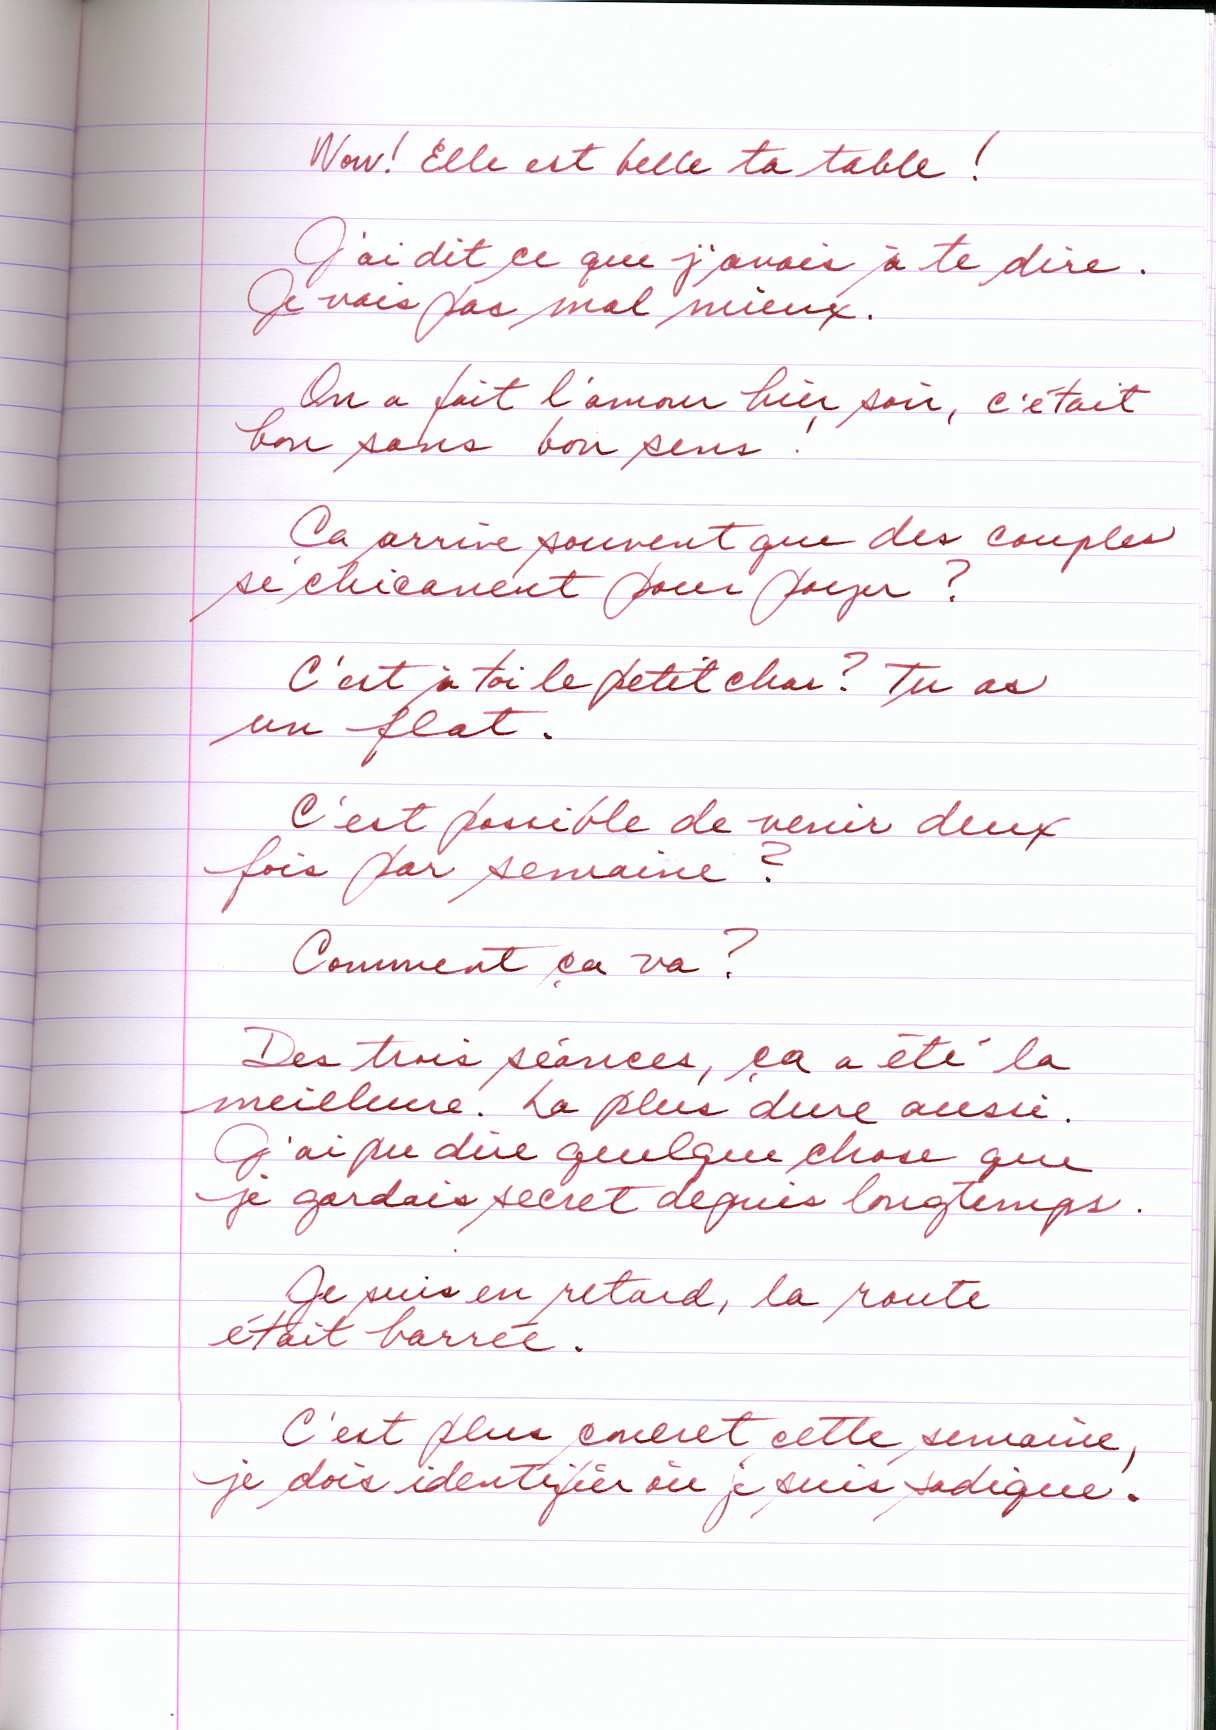 Wow! Elle est belle ta table !
J'ai dit ce que j'avais à te dire.
Je vais pas mal mieux.
On a fait l'amour hier soir, c'était
bon sans bon sens !
Ça arrive souvent que des couples
se chicanent pour payer ?
C'est à toi le petit char ? Tu as
un flat.
C'est possible de venir deux
fois par semaine ?
Comment ça va ?
Des trois séances, ça a été la
meilleure. La plus dure aussi.
J'ai pu dire quelque chose que
je gardais secret depuis longtemps.
Je suis en retard, la route
était barrée.
C'est plus concret cette semaine,
je dois identifier où je suis sadique.